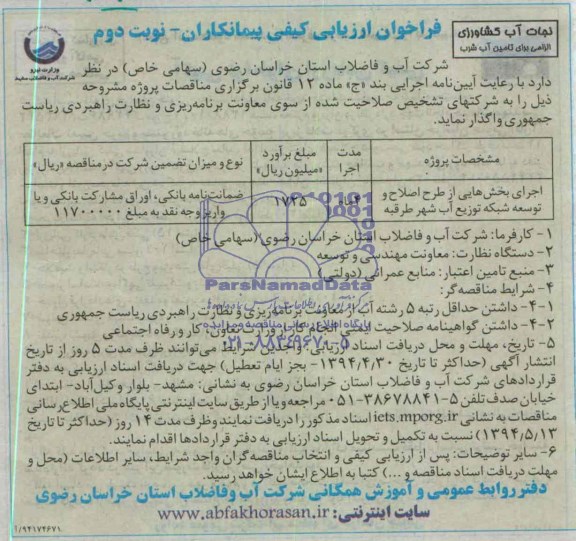 نجات آب کشاورزی
الزامی برای تامین آب شرب
فراخوان ارزیابی کیفی پیمانکاران- نوبت دوم
وزارت نیرو
شرکت آب و فاضلاب استان خراسان رضوی (سهامی خاص) در نظر
دارد با رعایت آیین‌نامه اجرایی بند «ج» ماده ۱۲ قانون برگزاری مناقصات پروژه مشروحه
ذیل را به شرکتهای تشخیص صلاحیت شده از سوی معاونت برنامه‌ریزی و نظارت راهبردی ریاست
جمهوری واگذار نماید.
مشخصات پروژه
مدت اجرا
مبلغ برآورد «میلیون ریال»
نوع و میزان تضمین شرکت در مناقصه «ریال»
اجرای بخش‌هایی از طرح اصلاح و
توسعه شبکه توزیع آب شهر طرقبه
۱۷۳۵
ضمانت‌نامه بانکی، اوراق مشارکت بانکی و یا
واریز وجه نقد به مبلغ ۱۱۷۰۰۰۰۰۰
۱- کارفرما: شرکت آب و فاضلاب استان خراسان رضوی (سهامی خاص)
۲- دستگاه نظارت: معاونت مهندسی و توسعه
۳- منبع تامین اعتبار: منابع عمرانی (دولتی)
۴- شرایط مناقصه‌گر:
۴-۱- داشتن حداقل رتبه ۵ رشته آب از معاونت برنامه‌ریزی و نظارت راهبردی ریاست جمهوری
۴-۲- داشتن گواهینامه صلاحیت ایمنی انجام کار از وزارت تعاون، کار و رفاه اجتماعی
۵- تاریخ، مهلت و محل دریافت اسناد ارزیابی: واجدین شرایط می‌توانند ظرف مدت ۵ روز از تاریخ
انتشار آگهی (حداکثر تا تاریخ ۱۳۹۴,۴,۳۰- بجز ایام تعطیل) جهت دریافت اسناد ارزیابی به دفتر
قراردادهای شرکت آب و فاضلاب استان خراسان رضوی به نشانی: مشهد- بلوار وکیل‌آباد- ابتدای
خیابان صدف تلفن ۵-۳۸۶۷۸۸۴۱-۰۵۱ مراجعه و یا از طریق سایت اینترنتی پایگاه ملی اطلاع‌رسانی
مناقصات به نشانی iets.mporg.ir اسناد مذکور را دریافت نمایند و ظرف مدت ۱۴ روز (حداکثر تا تاریخ
۱۳۹۴,۵,۱۳) نسبت به تکمیل و تحویل اسناد ارزیابی به دفتر قراردادها اقدام نمایند.
۶- سایر توضیحات: پس از ارزیابی کیفی و انتخاب مناقصه‌گران واجد شرایط، سایر اطلاعات (محل و
مهلت دریافت اسناد مناقصه و ...) کتبا به اطلاع ایشان خواهد رسید.
دفتر روابط عمومی و آموزش همگانی شرکت آب و فاضلاب استان خراسان رضوی
سایت اینترنتی: www.abfakhorasan.ir
۱/۹۴۱۷۴۶۷۱
ParsNamadData
پایگاه اطلاع رسانی مناقصه و مزایده
۰۲۱-۸۸۳۴۹۶۷۰-۵